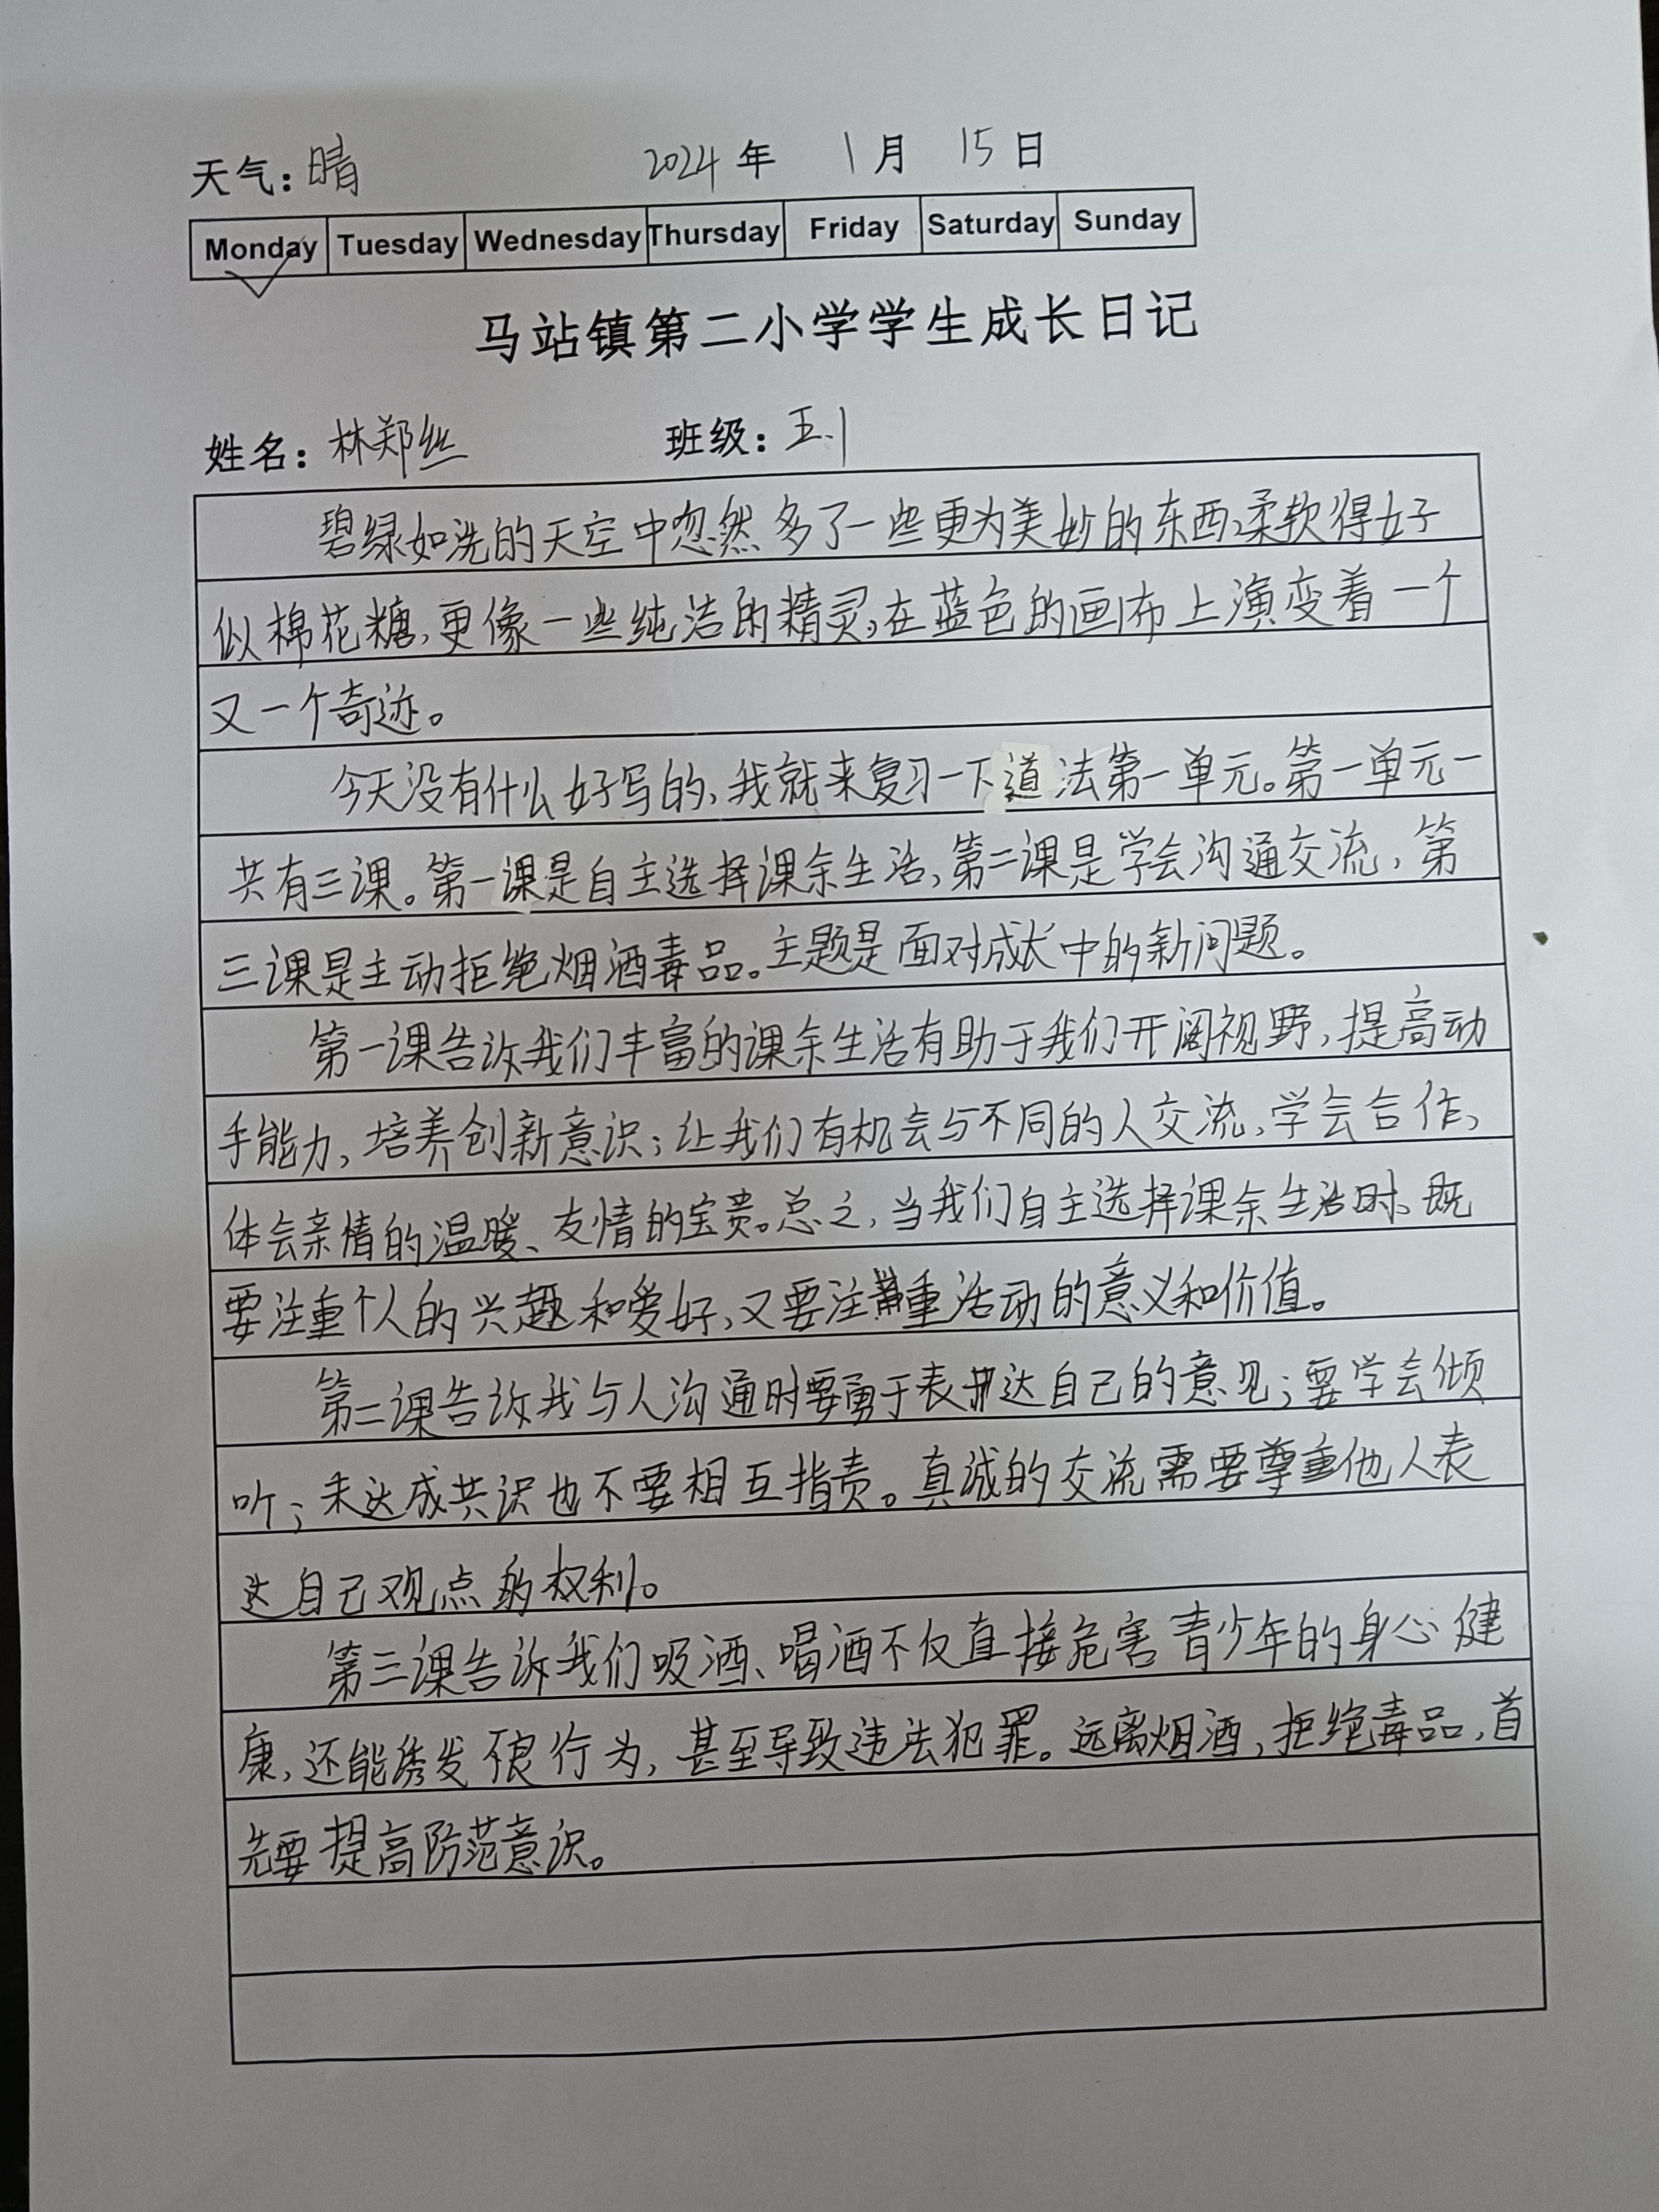 天气：晴 2024年 1月 15日
Monday Tuesday Wednesday Thursday Friday Saturday Sunday
马站镇第二小学学生成长日记
姓名：林郑丝 班级：五.1
碧绿如洗的天空中忽然多了一些更为美妙的东西，柔软得好
似棉花糖，更像一些纯洁的精灵，在蓝色的画布上演变着一个
又一个奇迹。
今天没有什么好写的，我就来复习一下道法第一单元。第一单元一
共有三课。第一课是自主选择课余生活，第二课是学会沟通交流，第
三课是主动拒绝烟酒毒品。主题是面对成长中的新问题。
第一课告诉我们丰富的课余生活有助于我们开阔视野，提高动
手能力，培养创新意识；让我们有机会与不同的人交流，学会合作，
体会亲情的温暖、友情的宝贵。总之，当我们自主选择课余生活时，既
要注重个人的兴趣和爱好，又要注重活动的意义和价值。
第二课告诉我与人沟通时要勇于表达自己的意见；要学会倾
听；未达成共识也不要相互指责。真诚的交流需要尊重他人表
达自己观点的权利。
第三课告诉我们吸酒、喝酒不仅直接危害青少年的身心健
康，还能诱发不良行为，甚至导致违法犯罪。远离烟酒，拒绝毒品，首
先要提高防范意识。